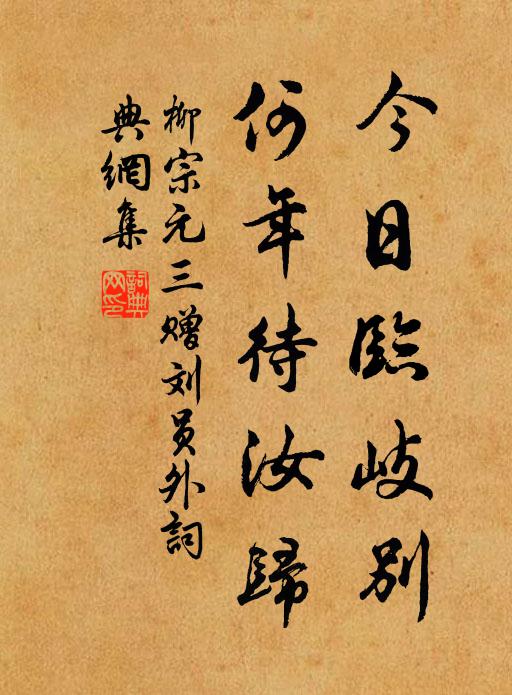 今日臨岐别
何年待汝歸
柳宗元三赠刘员外詞
典網集
詞典网印